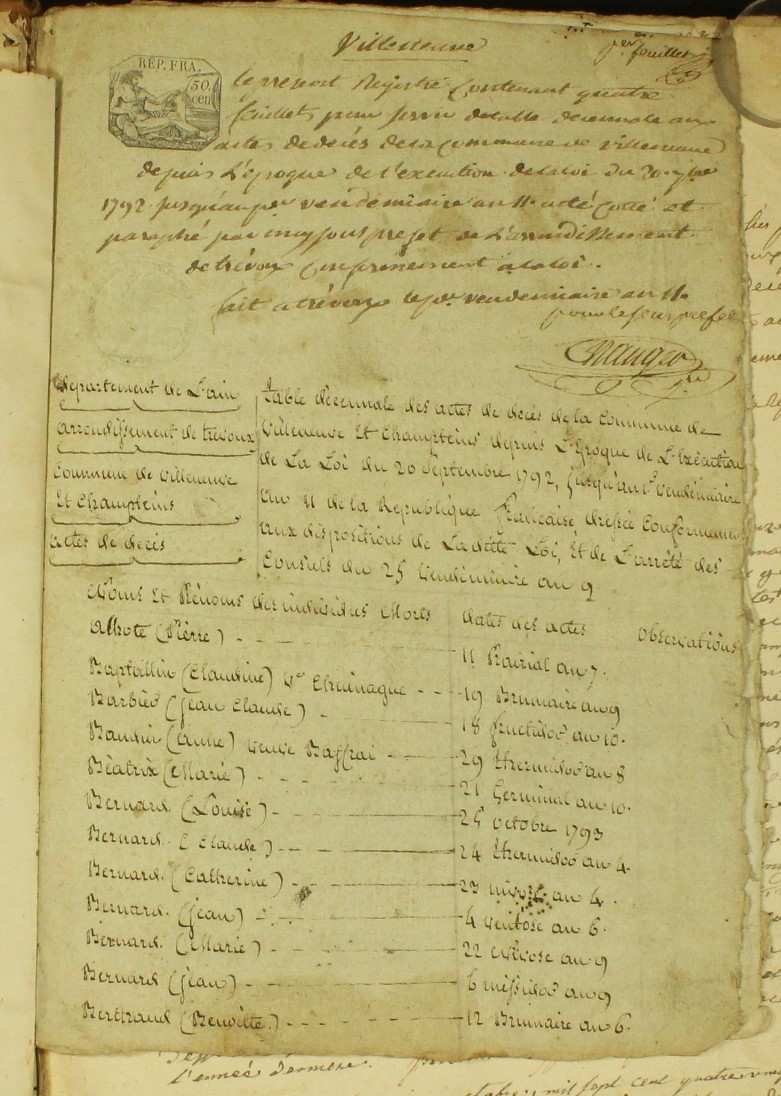 Villeneuve
1er feuillet
RÉP. FRA.
50.
cen
le present Registre Contenant quatre
feuillets pour servir de table decennale aux
actes de decés de la commune de villeneuve
depuis L'époque de l'execution de la loi du 20 7bre
1792 jusqu'au per vendémiaire an 11 a été Cotté et
paraphé par moy sous prefet de L'arrondissement
de trévoux conformement a la loi.
fait a trévoux le per vendemiaire an 11.
pour le sous prefet
Departement de L'ain
arrondissement de trevoux
Commune de villeneuve
Et Champteins
actes de decés
table décennale des actes de decès de la Commune de
Villeneuve Et Champteins depuis L'Epoque de L'Exécution
de La Loi du 20 Septembre 1792, jusqu'au 1er Vendémiaire
an 11 de la Republique française dressée Conformemen
aux dispositions de La ditte Loi, Et de L'arrêté des
Consuls du 25 Vendémiaire an 9
Noms Et Prénoms des individus Morts
dates des actes
observations
alhote (Pierre) 11 Prairial an 7.
(Claudine) Ve 19 Brumaire an 9
Barbier (jean Claude) 18 fructidor an 10.
Baudin (anne) veuve Baffrai 29 thermidor an 8
Béatrix (Marie) 21 Germinal an 10.
Bernard (Louise) 25 octobre 1793
Bernard (Claude) 24 thermidor an 4.
Bernard. (Catherine) 23 nivose an 4.
Bernard. (jean) 4 ventose an 6.
Bernard. (Marie) 22 nivose an 9
Bernard (jean) 6 messidor an 9
Bertrand (Benoitte.) 12 Brumaire an 6.
L'année derniere.
mil sept cent quatre vingt